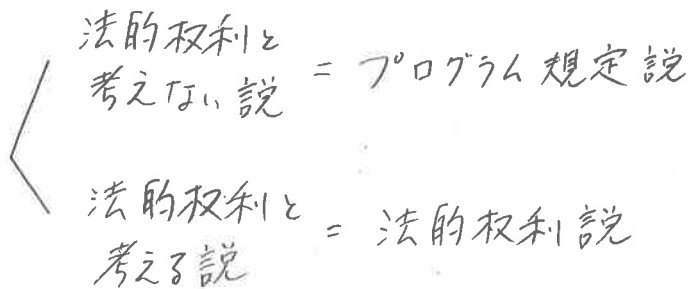 法的権利と
考えない説 = プログラム規定説
法的権利と
考える説 = 法的権利説